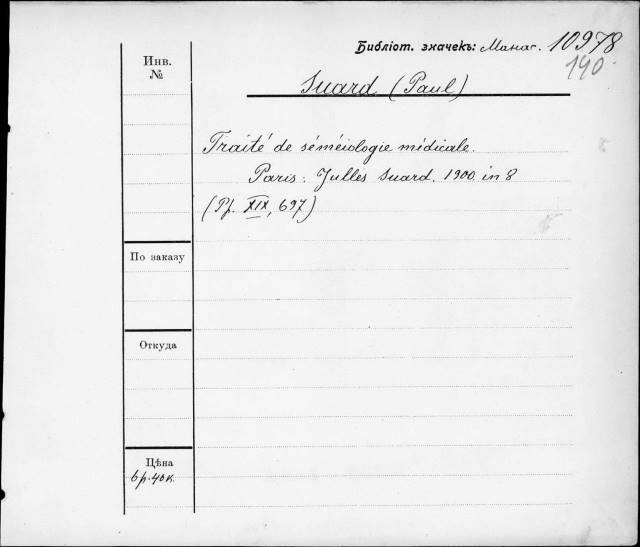 Библіот. значекъ: Манас. 10978
190
Инв.
№
Suard (Paul)
Traité de séméiologie médicale.
Paris: Julles Suard. 1900. in 8
(Pp. XIX, 697)
По заказу
Откуда
Цѣна
6 р. 40 к.